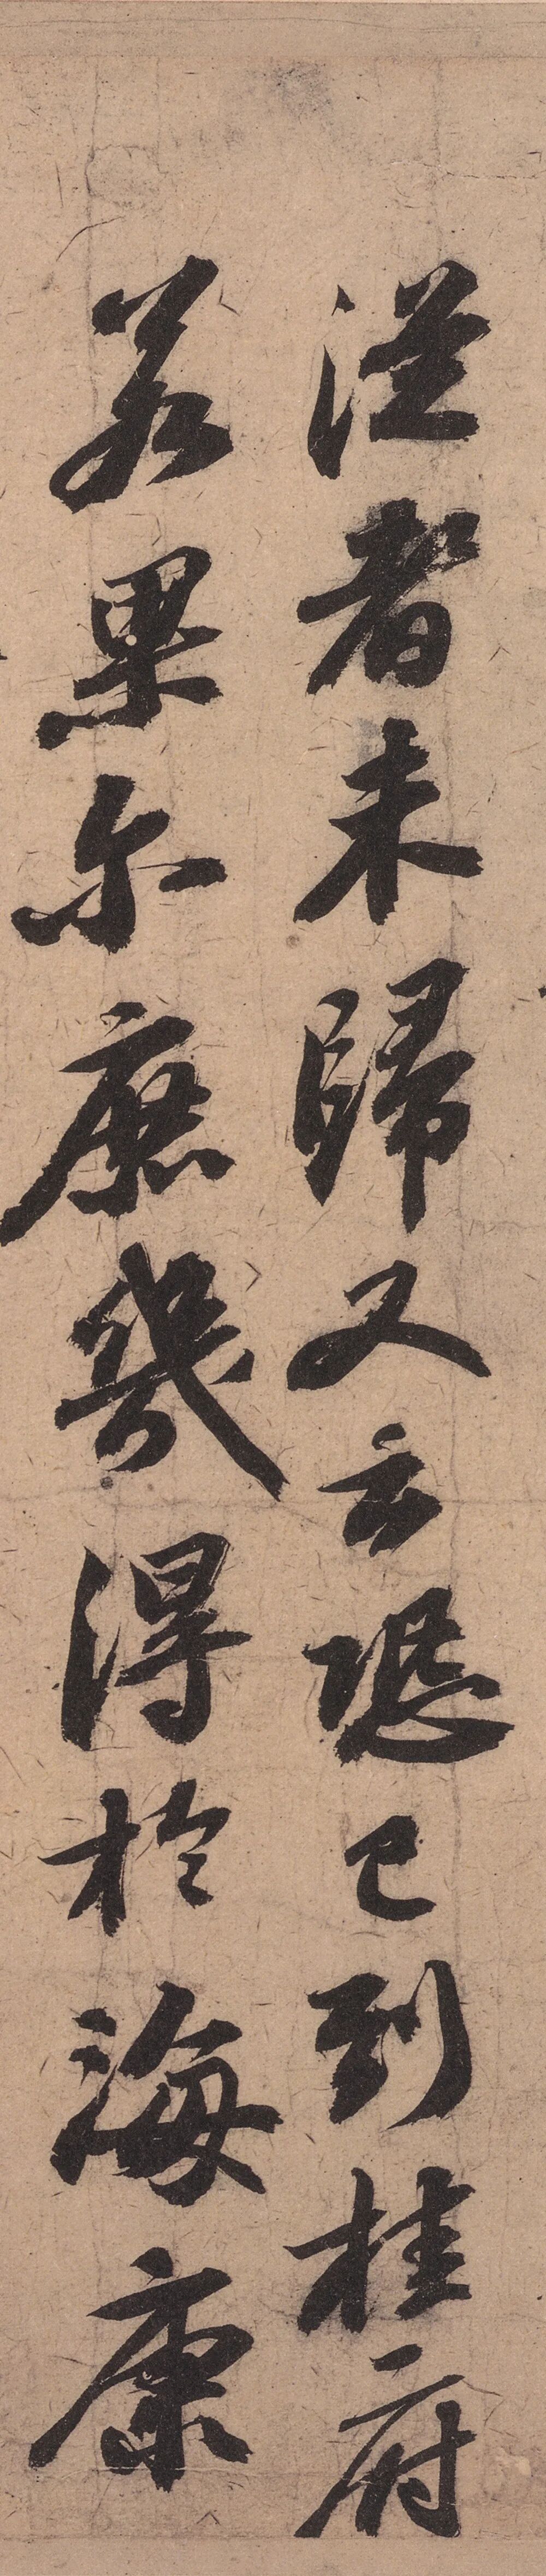 從者未歸又云恐已到桂府
若果尔庶幾得於海康